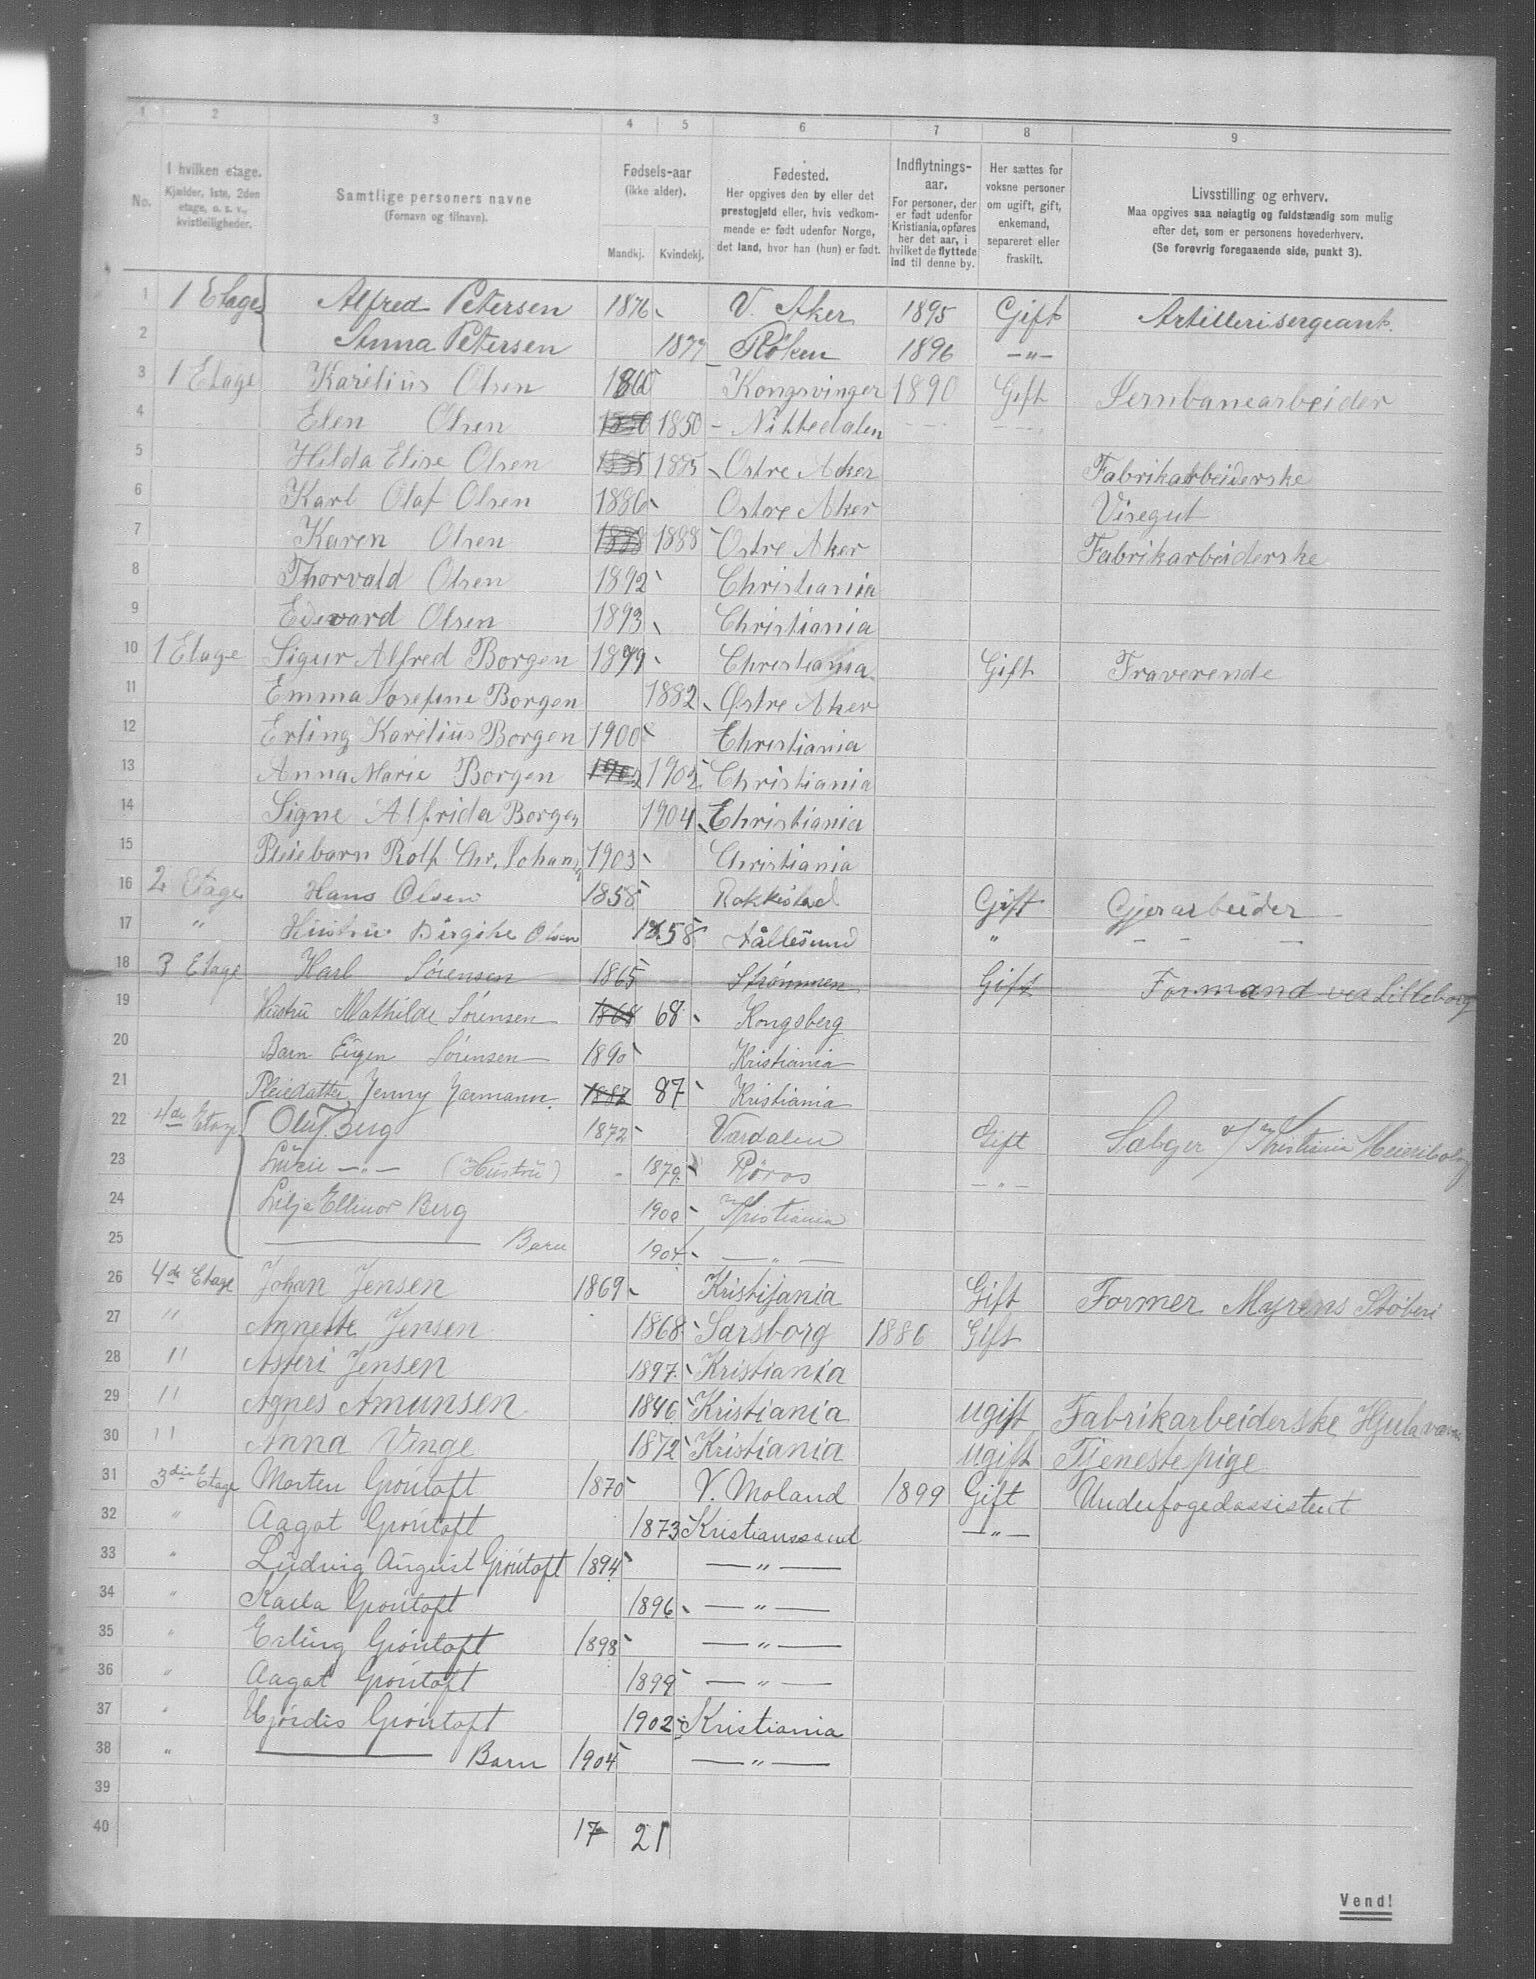 1 2 3 4 5 6 7 8 9
No.
I hvilken etage.
Kjælder, 1ste, 2den
etage, o. s. v.,
kvistleiligheder.
Samtlige personers navne
(Fornavn og tilnavn).
Fødsels-aar
(ikke alder).
Mandkj. Kvindekj.
Fødested.
Her opgives den by eller det
prestogjeld eller, hvis vedkom-
mende er født udenfor Norge,
det land, hvor han (hun) er født.
Indflytnings-
aar.
For personer, der
er født udenfor
Kristiania, opføres
her det aar, i
hvilket de flyttede
ind til denne by.
Her sættes for
voksne personer
om ugift, gift,
enkemand,
separeret eller
fraskilt.
Livsstilling og erhverv.
Maa opgives saa nøiagtig og fuldstændig som mulig
efter det, som er personens hovederhverv.
(Se forøvrig foregaaende side, punkt 3).
1 1 Etage Alfred Petersen 1876 V. Aker 1895 Gift Artillerisergeant.
2 Anna Petersen 1877 Röken 1896 —"—
3 1 Etage Karelius Olsen 1860 Kongsvinger 1890 Gift Jernbanearbeider
4 Elen Olsen 1850 1850 - Nittedalen
5 Hilda Elise Olsen 1885 1885 Ostre Aker Fabrikarbeiderske
6 Karl Olaf Olsen 1886 Ostre Aker Visegut
7 Karen Olsen 1888 1888 Ostre Aker Fabrikarbeiderske
8 Thorvald Olsen 1892 Christiania
9 Edevard Olsen 1893 Christiania
10 1 Etage Sigur Alfred Borgen 1879 Christiania Gift Fraverende
11 Emma Josefine Borgen 1882 Østre Aker
12 Erling Karelius Borgen 1900 Christiania
13 Anna Marie Borgen 1902 1902 Christiania
14 Signe Alfrida Borgen 1904 Christiania
15 Pleiebarn Rolf Chr. Johans 1903 Christiania
16 2 Etage Hans Olsen 1858 Rakkestad Gift Gjerarbeider
17 " Hustru Birgitte Olsen 1858 Aallesund " — — —
18 3 Etage Karl Sørensen 1865 Strömmen Gift Formand ved Lilleborg
19 Hustru Mathilde Sörensen 1868 68 Kongsberg
20 Barn Eigen Sörensen 1890 Kristiania
21 Pleiedatter Jenny Jarmann 1887 87 Kristiania
22 4de Etage Oluf Berg 1872 Værdalen Gift Sælger v/ Kristiania Meieribolag
23 Luzie —"— (Hustru) 1879 Röros —"—
24 Lilja Ellinor Berg 1900 Kristiania
25 ——— Barn 1904 —"—
26 4de Etage Johan Jensen 1869 Kristijania Gift Former Myrens Støberi
27 " Annette Jensen 1868 Sarsborg 1886 Gift
28 " Asteri Jensen 1897 Kristiania
29 " Agnes Amunsen 1846 Kristiania ugift Fabrikarbeiderske Hjula
30 " Anna Vinge 1872 Kristiania ugift Tjenestepige
31 3die Etage Morten Gröntoft 1870 V. Moland 1899 Gift Underfogedassistent
32 " Aagot Gröntoft 1873 Kristianssand —"—
33 " Ludvig August Gröntoft 1894 —"—
34 " Karla Gröntoft 1896 —"—
35 " Erling Gröntoft 1898 —"—
36 " Aagot Gröntoft 1899 —"—
37 " Hjördis Gröntoft 1902 Kristiania
38 " ——— Barn 1904 —"—
39
40 17 21
Vend!